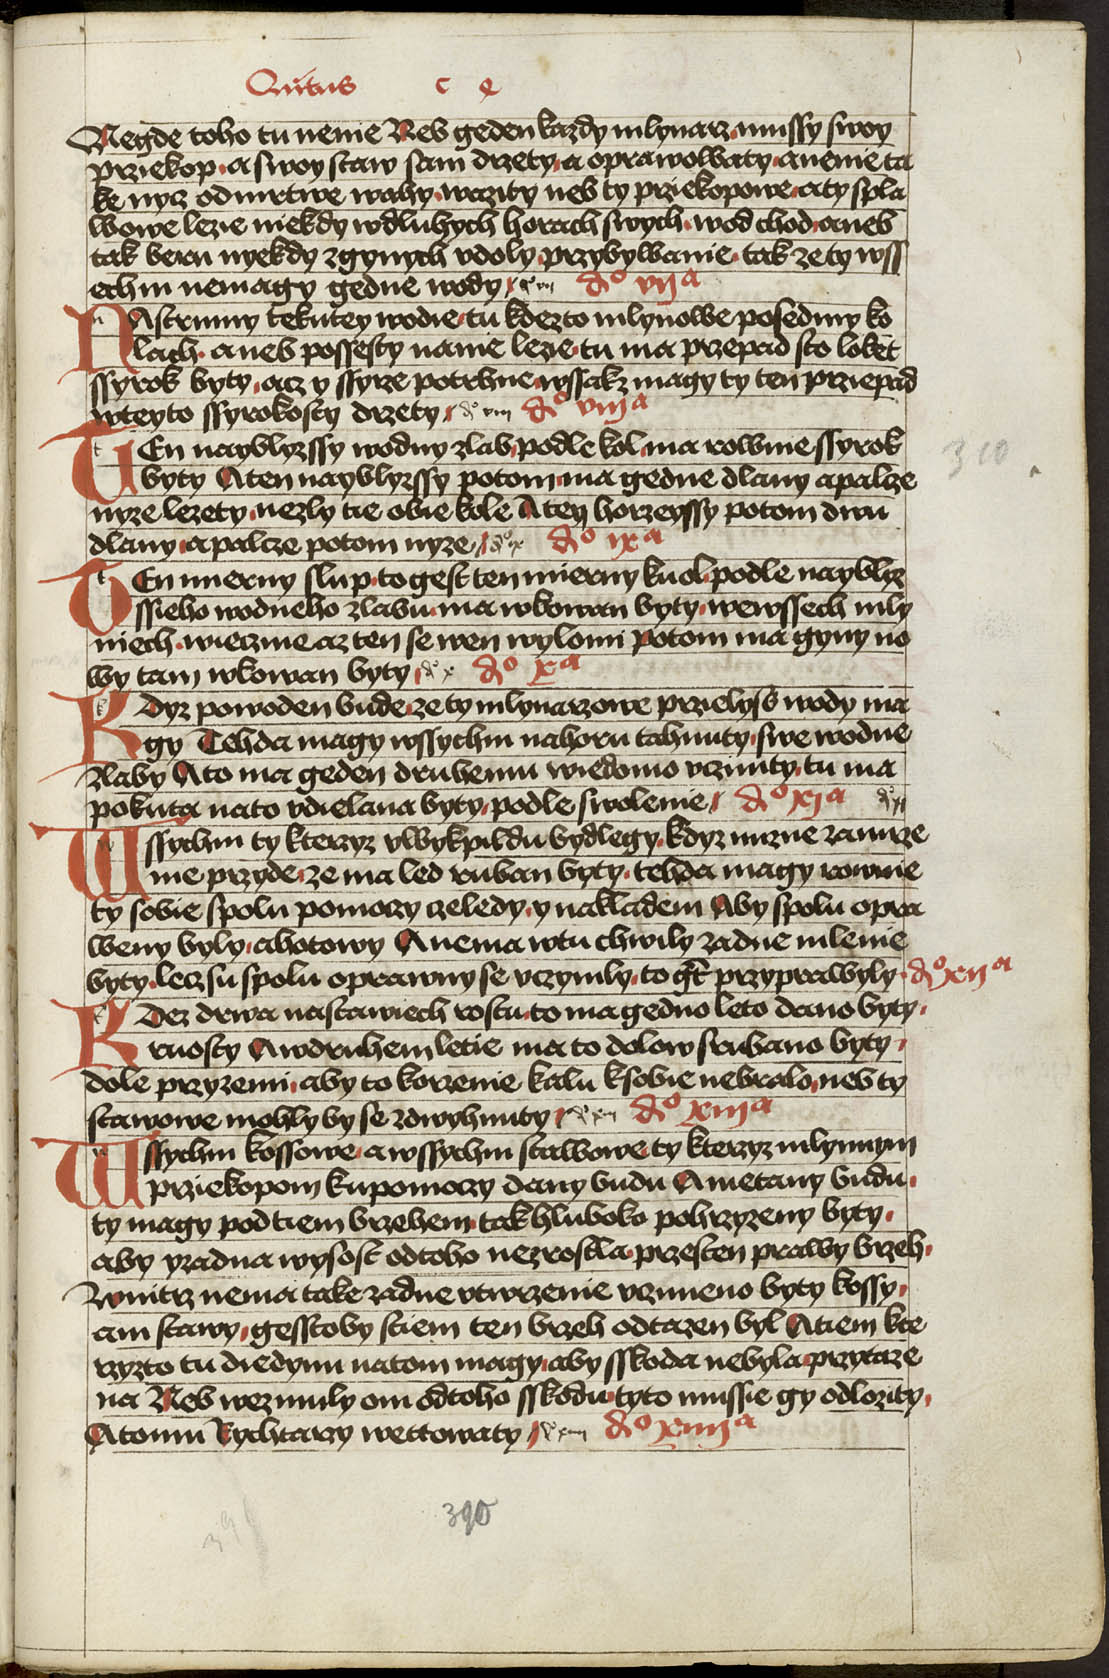 Quitus c e
Negde toho tu nenie Neb geden kazdy mlynarz mussy swoy
prziekop a swoy staw sam drzety a oprawowaty a nenie ta
ke nycz odmrtwe wahy wazity neb ty priekopowe a ty spla
wowe lezie niekdy wdluhych horach swych wod chod aneb
tak beru nyekdy zgynych vdoly przybywanie tak ze ty wss
echni nemagy gedne wody d° vij a
NAstrumy tekutey wodie tu kdezto mlynowe posedmy ko
lach aneb possesty namie lezie tu ma przepad sto loket
ssyrok byty acz y ssyrze potrbne wssakz magy ty ten prziepad
wteyto ssyrokosty drzety d° viii d° viij a
TEn nayblyzssy wodny zlab podle kol ma rownie ssyrok
byty A ten nayblyzssy potom ma gedne dlany a palcze
nyze lezety nezly tie obie kole A tey horzeyssy potom dwu
dlany a palcze potom nyze d° ix d° ix a
TEn mierny slup to gest ten mierny kuol podle nayblyz
ssieho wodneho zlabu ma wkowan byty wewssech mly
niech wieczne az ten se wen wylomi potom ma gyny no
wy tam wkowan byty d° x d° x a
KDyz powoden bude ze ty mlynarzowe przielyss wody ma
gy Tehda magy wssychni nahoru tahnuty swe wodne
zlaby A to ma geden druhemu wiedomo vczinity tu ma
pokuta nato vdielana byty podle swolenie d° xj a d° xi
Wssychni ty kteryz vlwykpildu bydlegy kdyz mrzne zamrze
nie przyde ze ma led ruban byty tehda magy rownie
ty sobie spolu pomoczy czeledy y nakladem Aby spolu opra
weny byly a hotowy A nema wtu chwily zadne mlenie
byty lecz su spolu oprawny se vczynily to gt przyprawyly d° xij a
KDez drwa nastawiech rostu to ma gedno leto dano byty
ruosty A wdruhem letie ma to dolow srubano byty
dole przyzemi aby to korzenie kalu ksobie nebralo neb ty
stawowe mohly by se zdwyhnuty d° xiii d° xiij a
Wssychni kossowe a wssychni stawowe ty kteryz mlynnym
prziekopom kupomoczy dany budu A metany budu
ty magy pod tiem brzehem tak hluboko pohrzyzeny byty
aby yzadna wysost odtoho nezrostla przesten prawy brzeh
Wnitrz nema take zadne vtwrzenie vczineno byty kossy
ani stawy gesstoby stiem ten brzeh odtazen byl A tiem kte
rzyzto tu diedynu natom magy aby sskoda nebyla przytaze
na Neb wezmuly oni odtoho sskodu tyto mussie gy odlozity
A tomu Rychtarzy wettowaty d° xiiii d° xiiij a
310
390